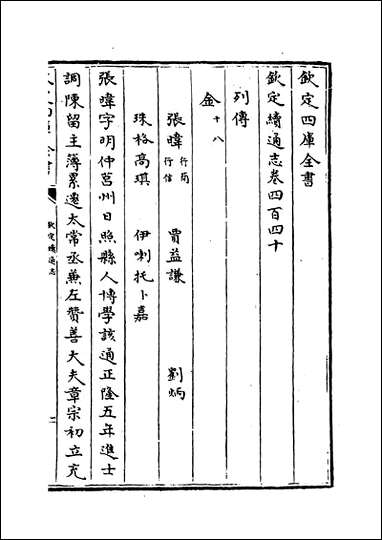 欽定四庫全書
欽定續通志卷四百四十
列傳
金十八
張暐行簡行信 賈益謙 劉炳
珠格高琪 伊喇托卜嘉
張暐字明仲莒州日照縣人博學該通正隆五年進士
調陳留主薄累遷太常丞兼左贊善大夫章宗初立充
欽定續通志